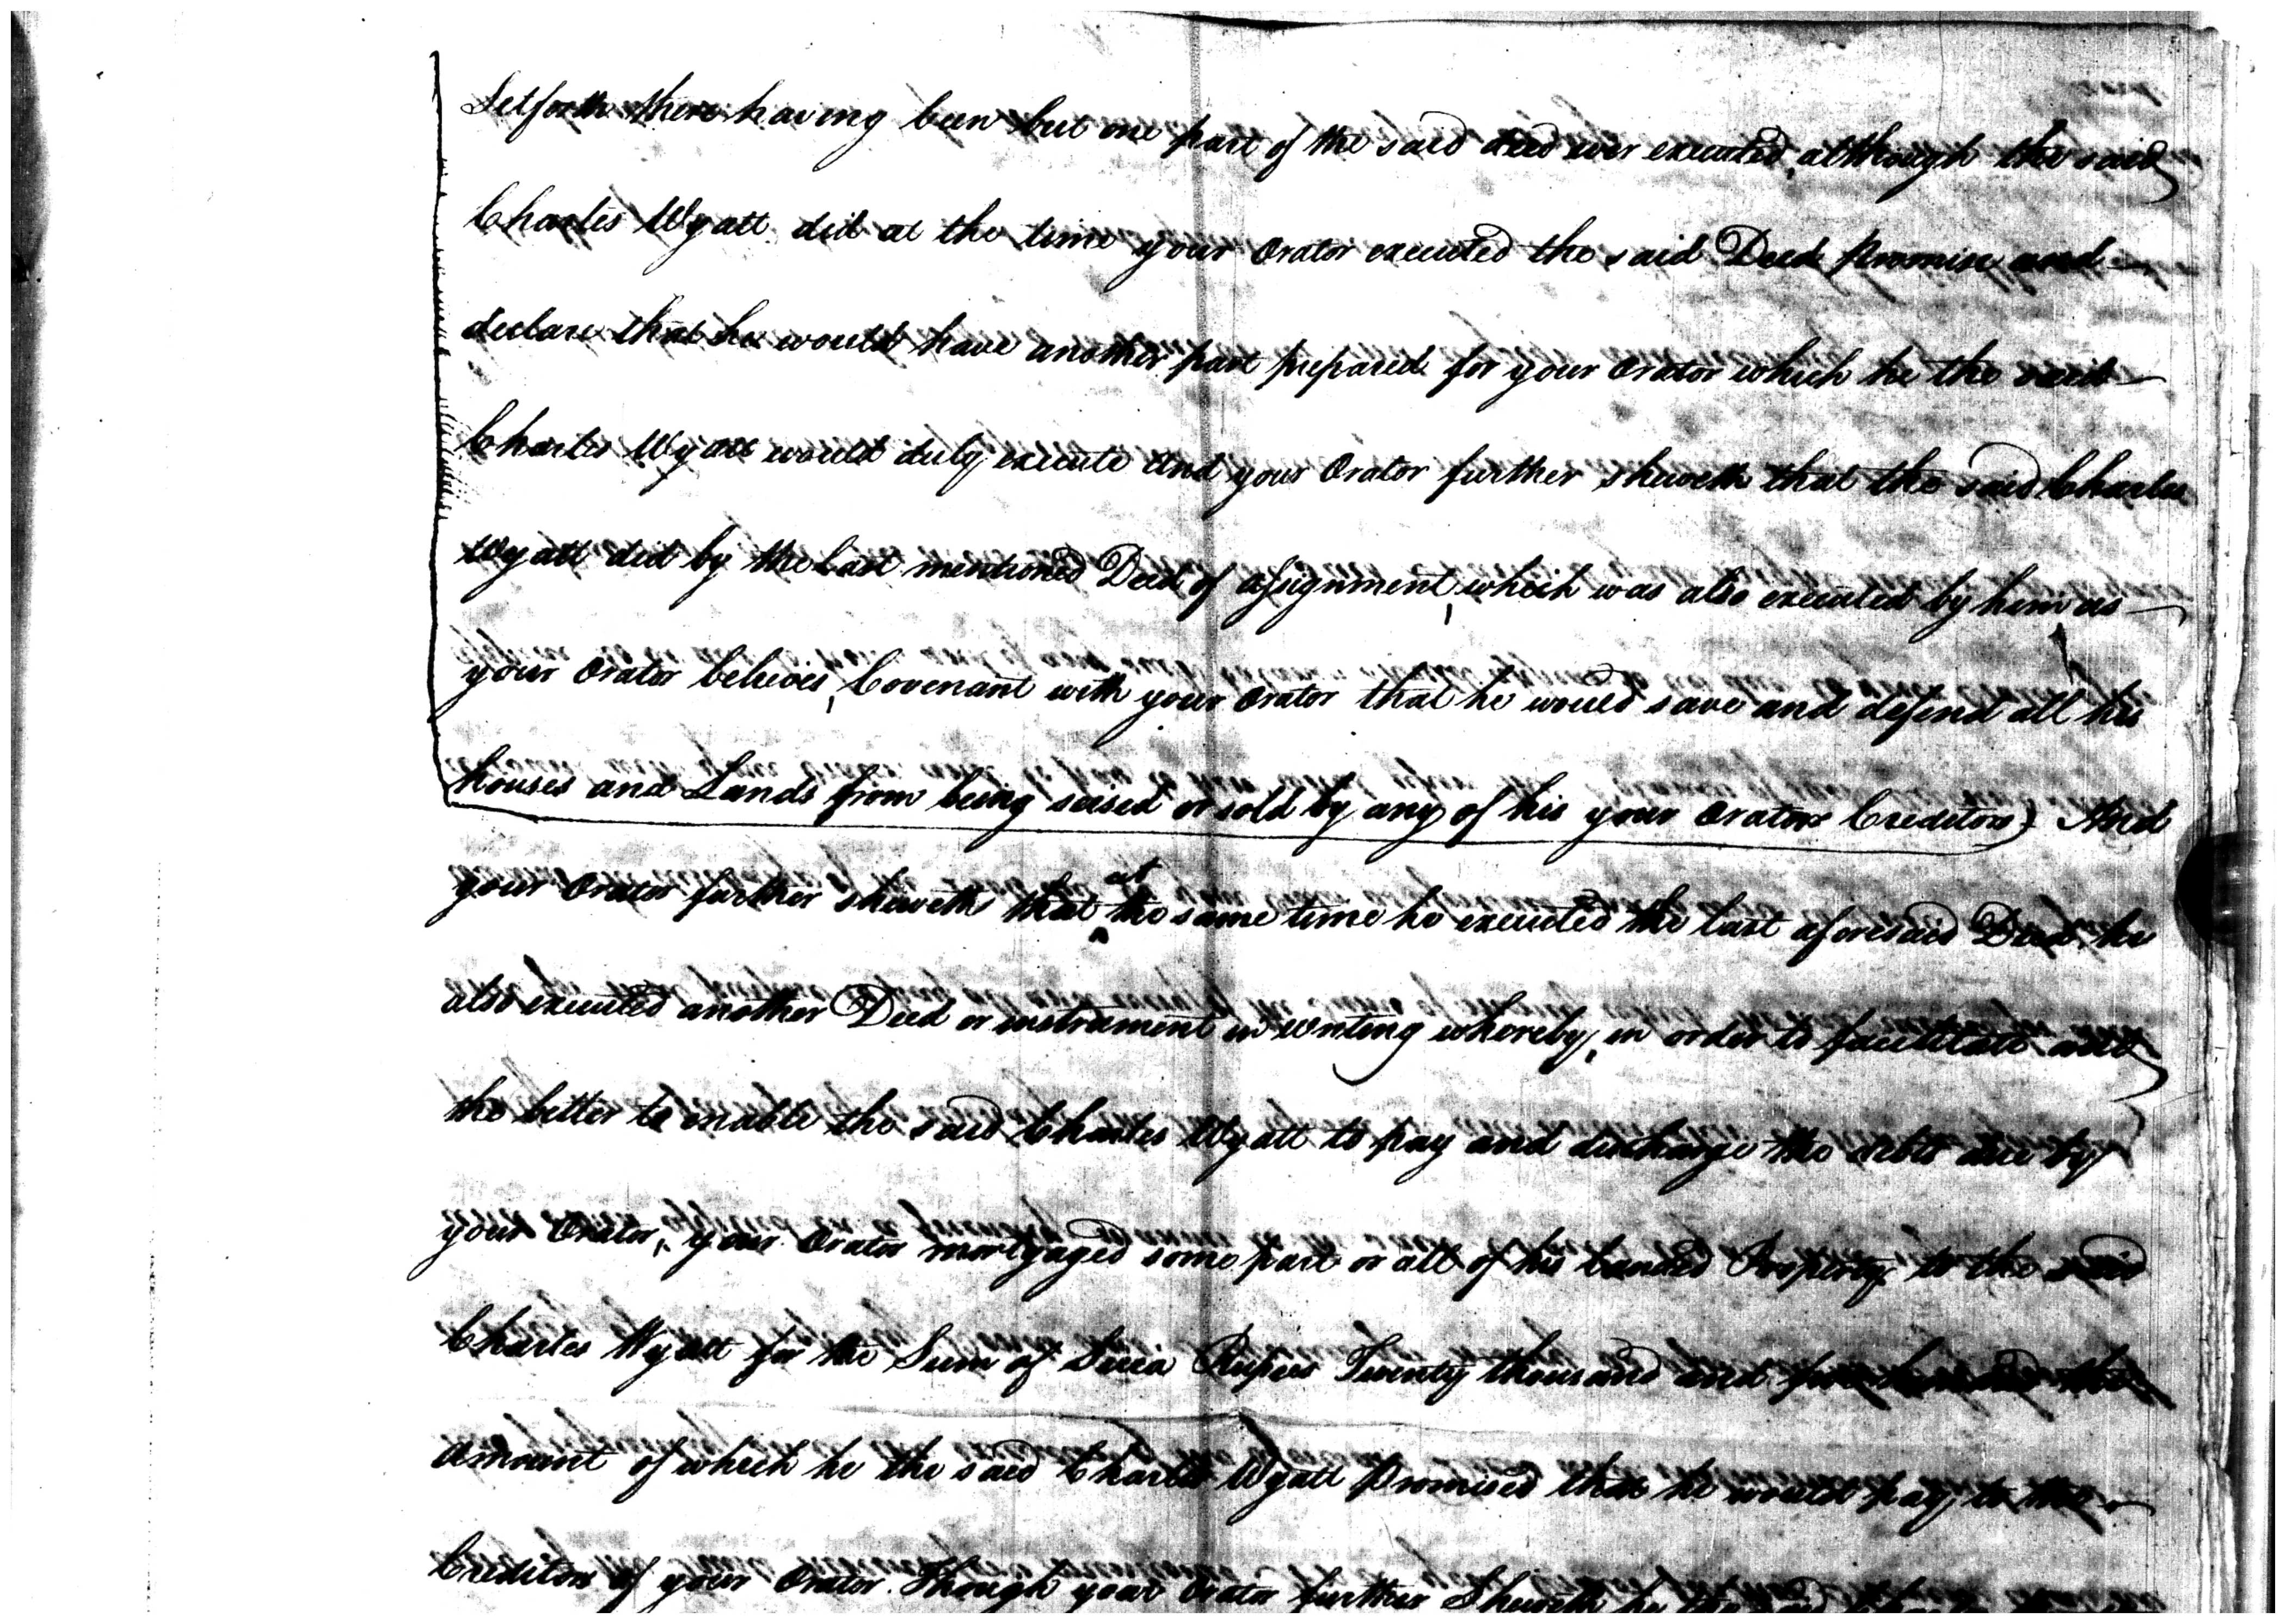 Setforth there having been but one part of the said deed ever executed, although the said
Charles Wyatt did at the time your Orator executed the said Deed Promise and
declare that he would have another part prepared for your Orator which he the said
Charles Wyatt would duly execute And your Orator further sheweth that the said Charles
Wyatt did by the Last mentioned Deed of assignment, which was also executed by him as
your Orator believes, Covenant with your Orator that he would save and defend all his
houses and Lands from being seised or sold by any of his your Orators Creditors) And
your Orator further sheweth that at the same time he executed the last aforesaid Deed he
also executed another Deed or instrument in writing whereby, in order to facilitate and
the better to enable the said Charles Wyatt to pay and discharge the debts due by
your Orator, your Orator mortgaged some part or all of his Landed Property to the said
Charles Wyatt for the Sum of Sicca Rupees Twenty thousand and five hundred the
Amount of which he the said Charles Wyatt Promised that he would pay to the
Creditors of your Orator. Though your Orator further Sheweth he the said